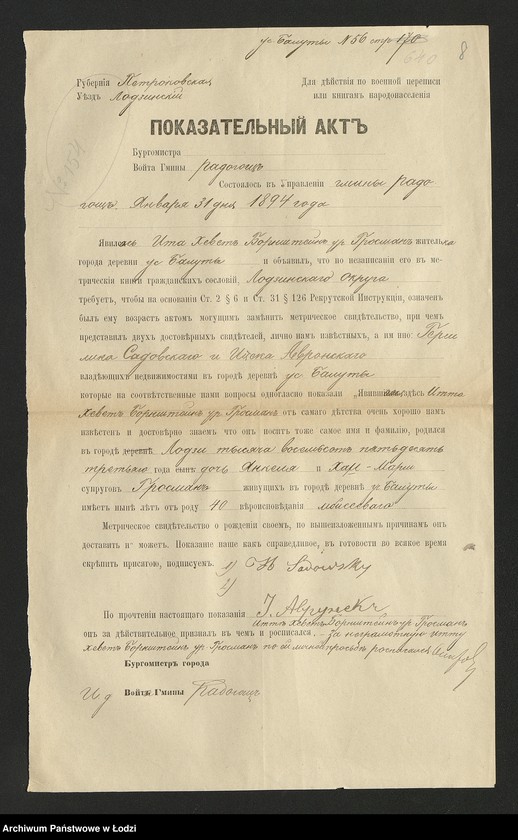 ус Балуты N 56 стр 170
8
Губернія Петроковская
Уѣздъ Лодзинскій
Для дѣйствія по военной переписи
или книгамъ народонаселенія
ПОКАЗАТЕЛЬНЫЙ АКТЪ
Бургомистра
Войта Гмины Радогощъ
Состоялось въ Управленіи гмины Радо
гощъ. Января 31 дня 1894 года
Явилась Ита Хеветъ Борнштейнъ ур. Гросманъ жителька
города деревни ус Балуты и объявилъ, что по незаписаніи его въ ме-
трическія книги гражданскихъ сословій, Лодзинскаго Округа
требуетъ, чтобы на основаніи Ст. 2 § 6 и Ст. 31 § 126 Рекрутской Инструкціи, означен
былъ ему возрастъ актомъ могущимъ замѣнить метрическое свидѣтельство, при чемъ
представилъ двухъ достовѣрныхъ свидѣтелей, лично намъ извѣстныхъ, а им нно: Герш
лика Садовскаго и Ицека Авронскаго
владѣющихъ недвижимостями въ городѣ деревнѣ ус Балуты
которые на соотвѣтственные нами вопросы одногласно показали „Явившаяся здѣсь Итта
Хеветъ Борнштейнъ ур. Гросманъ отъ самаго дѣтства очень хорошо намъ
извѣстенъ и достовѣрно знаемъ что онъ носитъ тоже самое имя и фамилію, родился
въ городѣ деревнѣ Лодзи тысяча восемьсотъ пятьдесятъ
третьяго года сынъ дочь Анкеля и Хаи-Маріи
супруговъ Гросманъ живущихъ въ городѣ деревнѣ ус Балуты
имѣетъ нынѣ лѣтъ отъ роду 40 вѣроисповѣданія моисеевого
Метрическое свидѣтельство о рожденіи своемъ, по вышеизложеннымъ причинамъ онъ
доставить не можетъ. Показаніе наше какъ справедливое, въ готовости во всякое время
скрѣпить присягою, подписуемъ. 1) H Sadowsky
2)
По прочтеніи настоящаго показанія
Итта Хеветъ Борнштейнъ ур. Гросманъ
онъ за дѣйствительное призналъ въ чемъ и росписался, - за неграмотную Итту
Хеветъ Борнштейнъ ур. Гросманъ по ея личной просьбѣ росписался
Бургомистръ города
И д Войтъ Гмины Радогощъ
Archiwum Państwowe w Łodzi